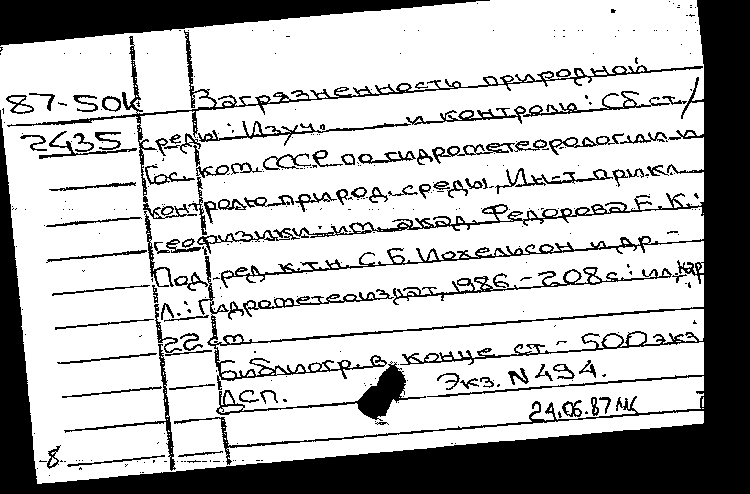 87-50К Загрязненность природной
2435 среды: Изуч. и контроль: Сб.ст./
Гос. ком. СССР по гидрометеорологии и
контролю природ. среды, Ин-т прикл.
геофизики им. акад. Федорова Е.К.;
Под ред. к.т.н. С.Б. Иохельсон и др. -
Л.: Гидрометеоиздат, 1986. - 208 с.: ил, кар
22 см.
Библиогр. в конце ст. - 500 экз.
ДСП. Экз. N 494.
24.06.87
8